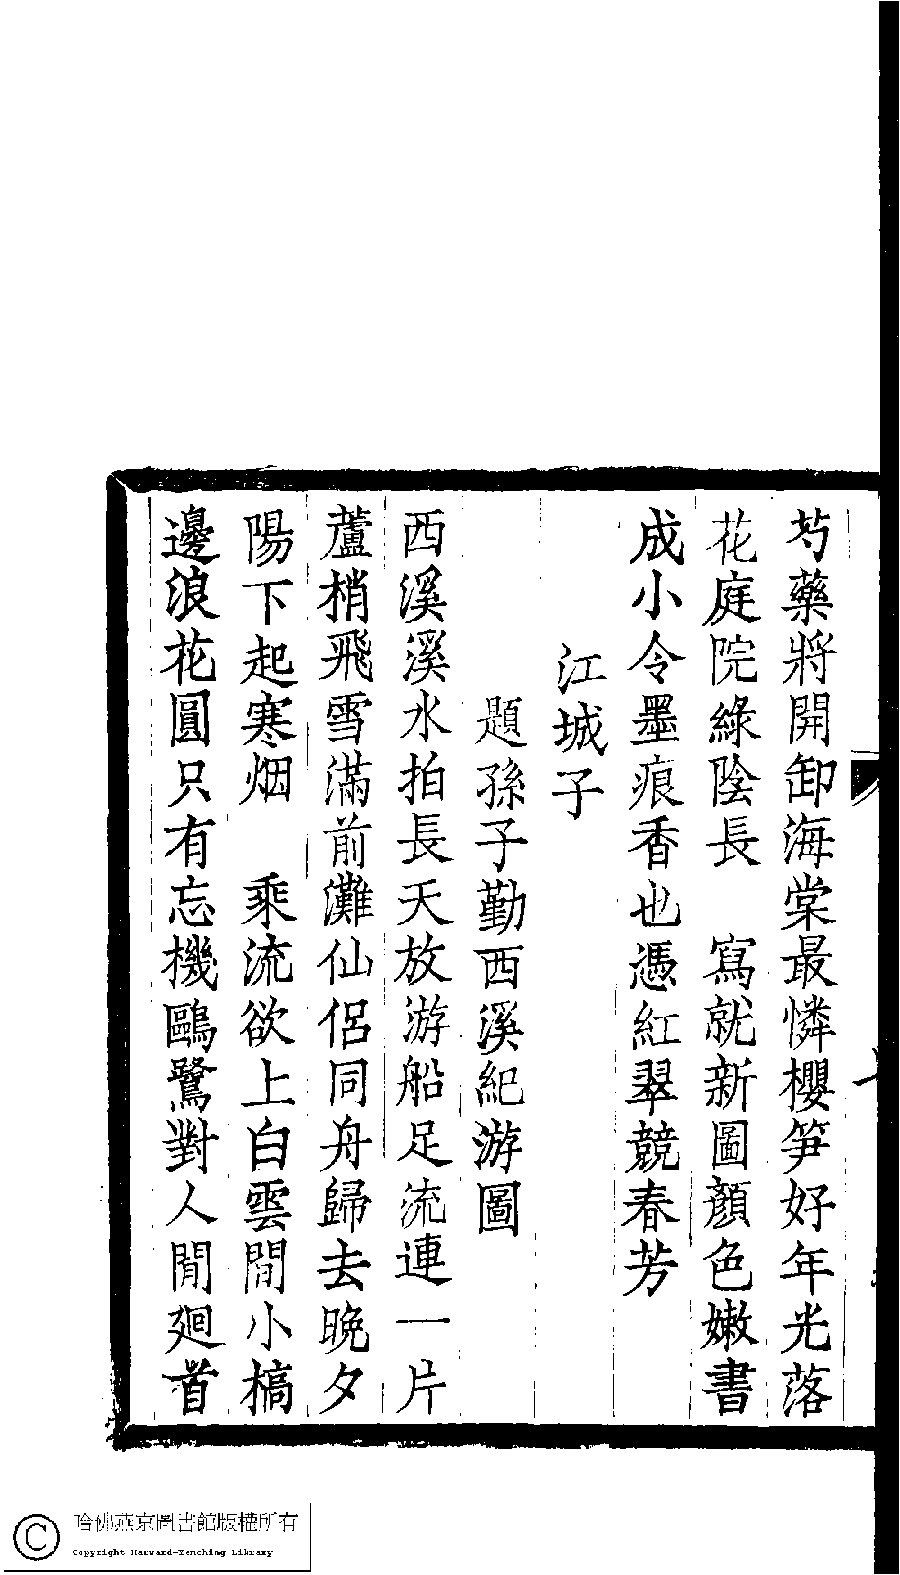 芍藥將開卸海棠最憐櫻笋好年光落
花庭院綠陰長　寫就新圖顏色嫩書
成小令墨痕香也憑紅翠競春芳
江城子
題孫子勤西溪紀游圖
西溪溪水拍長天放游船足流連一片
蘆梢飛雪滿前灘仙侶同舟歸去晚夕
陽下起寒烟　乘流欲上白雲間小槁
邊浪花圓只有忘機鷗鷺對人閒廻首
哈佛燕京圖書館版權所有
Copyright Harvard-Yenching Library